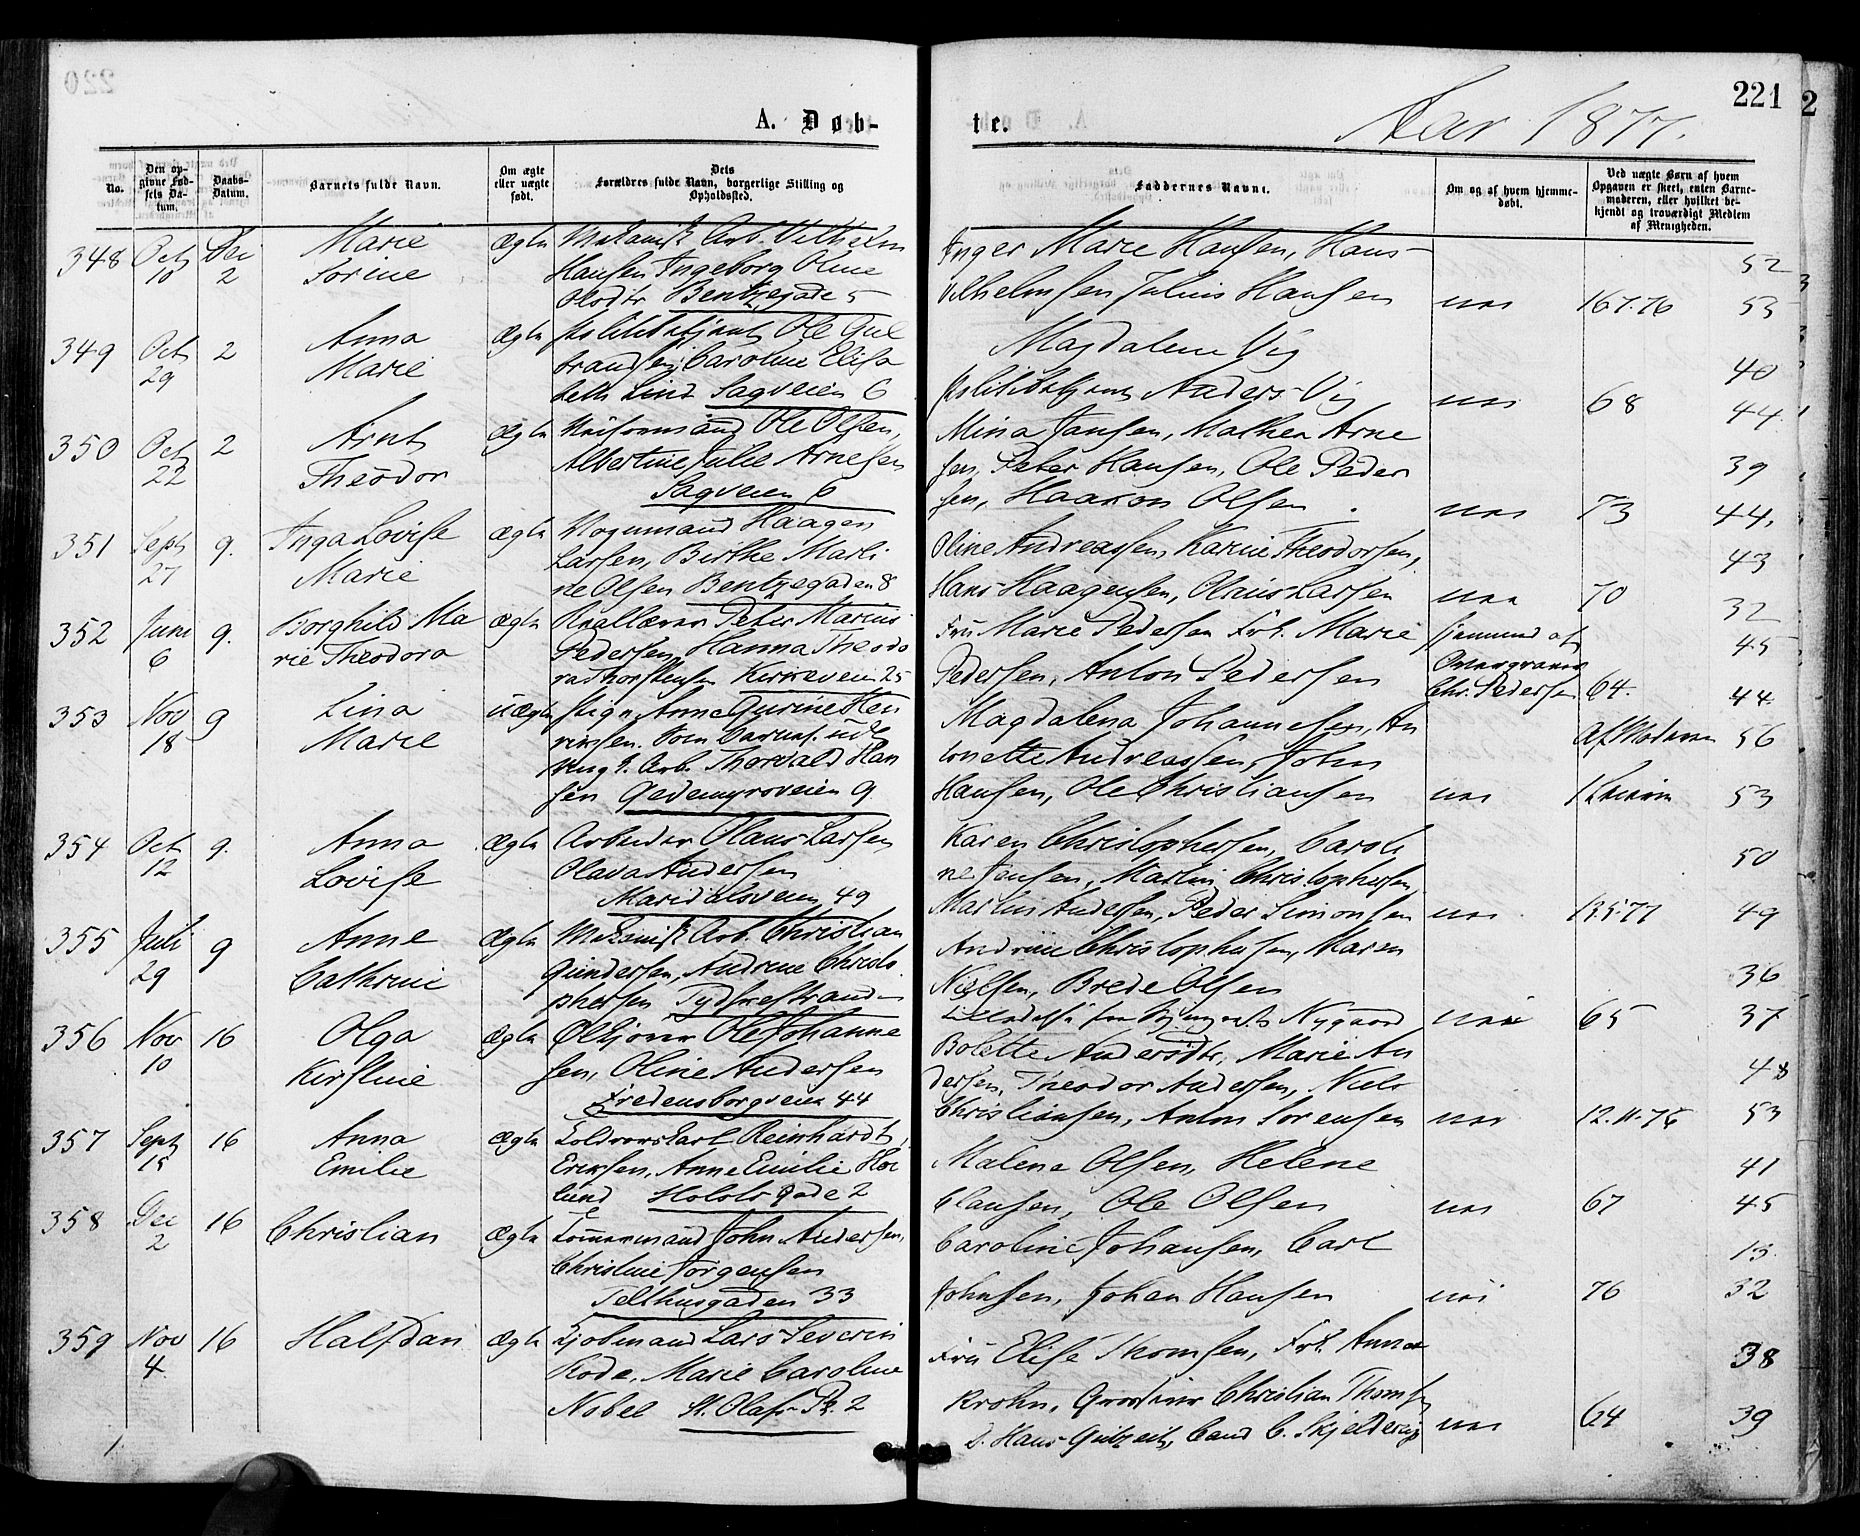 221
A. Døb-
te.
Aar 1877.
No.
Den op-
givne Fød-
sels Da-
tum.
Daabs-
Datum.
Barnets fulde Navn.
Om ægte
eller uægte
født.
Dets
Forældres fulde Navn, borgerlige Stilling og
Opholdssted.
Faddernes Navne.
Om og af hvem hjemme-
døbt.
Ved uægte Børn af hvem
Opgaven er skeet, enten Barne-
moderen, eller hvilket be-
kjendt og troværdigt Medlem
af Menigheden.
348 Oct 10 Dec 2 Marie Sorine ægte
Mekanisk Arb. Vilhelm
Hansen Ingeborg Oline
Olsdtr Bentzegade 5
Inger Marie Hansen, Hans
Vilhelmsen Julius Hansen
nei 16.7.76 52 53
349 Oct 29 2 Anna Marie ægte
Politibetjent Ole Gul
brandsen, Caroline Elisa
beth Lind Sagveien 6
Magdalene Vig
Politibetjent Anders Vig
nei 68 40 44
350 Oct 22 2 Arnt Theodor ægte
Ole Olsen,
Albertine Julie Arnesen
Sagveien 6
Mina Jansen, Mathea Arne
sen, Peter Hansen, Ole Peder
sen, Haakon Olsen
nei 73 39 44.
351 Sept 27 9. Inga Lovise Marie ægte
Vognmand Haagen
Larsen, Birthe Marti
ne Olsen Bentzegaden 8
Oline Andreassen, Karine Theodorsen,
Hans Haagensen, Olaus Larsen
nei 70 43 32
352 Juni 6 9. Borghild Ma
rie Theodora ægte
Reallærer Peter Marius
Pedersen, Hanna Theodo
ra Thorstensen Kirkeveien 25
Fru Marie Pedersen Frk. Marie
Pedersen, Anton Pedersen
hjemmed af
Overgraver
Chr. Pedersen 64. 45 44.
353 Nov 18 9 Lina Marie uægte
Pige Anne Gurine Hen
riksen. Som Barnef. udl.
Arb. Thorvald Han
sen Gedemyrsveien 9
Magdalena Johannesen, An
tonette Andreassen, John
Hansen, Ole Christiansen
nei Af Moderen 56 53
354 Oct 12 9. Anna Lovise ægte
Arbeider Olaus Larsen
Olava Andersen
Maridalsveien 49
Karen Christophersen, Caroli
ne Jensen, Martin Christophersen,
Martin Andersen, Peder Simonsen
nei 13.5.77 50 49
355 Juli 29 9 Anne Cathrine ægte
Mekanisk Arb. Christian
Gundersen, Andrine Christo
phersen Tydskestranden
Andrine Christophersen, Maren
Nielsen, Brede Olsen
nei 65 36 37
356 Nov 10 16 Olga Kirstine ægte
Ole Johanne
sen, Oline Andersen
Fredensborgveien 44
Bolette Andersdtr, Marie An
dersen, Theodor Andersen, Niels
Christiansen, Anton Sørensen
nei 12.11.76 48 53
357 Sept 15 16 Anna Emilie ægte
Reinhardt
Eriksen, Anne Emilie Hov
lund Holstsgade 2
Malene Olsen, Helene
Clausen, Ole Olsen
nei 67 41 45
358 Dec 2 16 Christian ægte
Tømmermand John Andersen,
Christine Jørgensen
Telthusgaden 33
Caroline Johansen, Carl
Johnsen, Johan Hansen
nei 76 13. 32
359 Nov 4 16 Halfdan ægte
Kjøbmand Lars Severin
Rode, Marie Caroline
Nobel St. Olafs Pl. 2
Fru Elise Thomsen, Frk. Anna
Krohn, Grosserer Christian Thomsen
D. Hans Gutzeit, Cand C. Skjelderup
nei 64 38 39